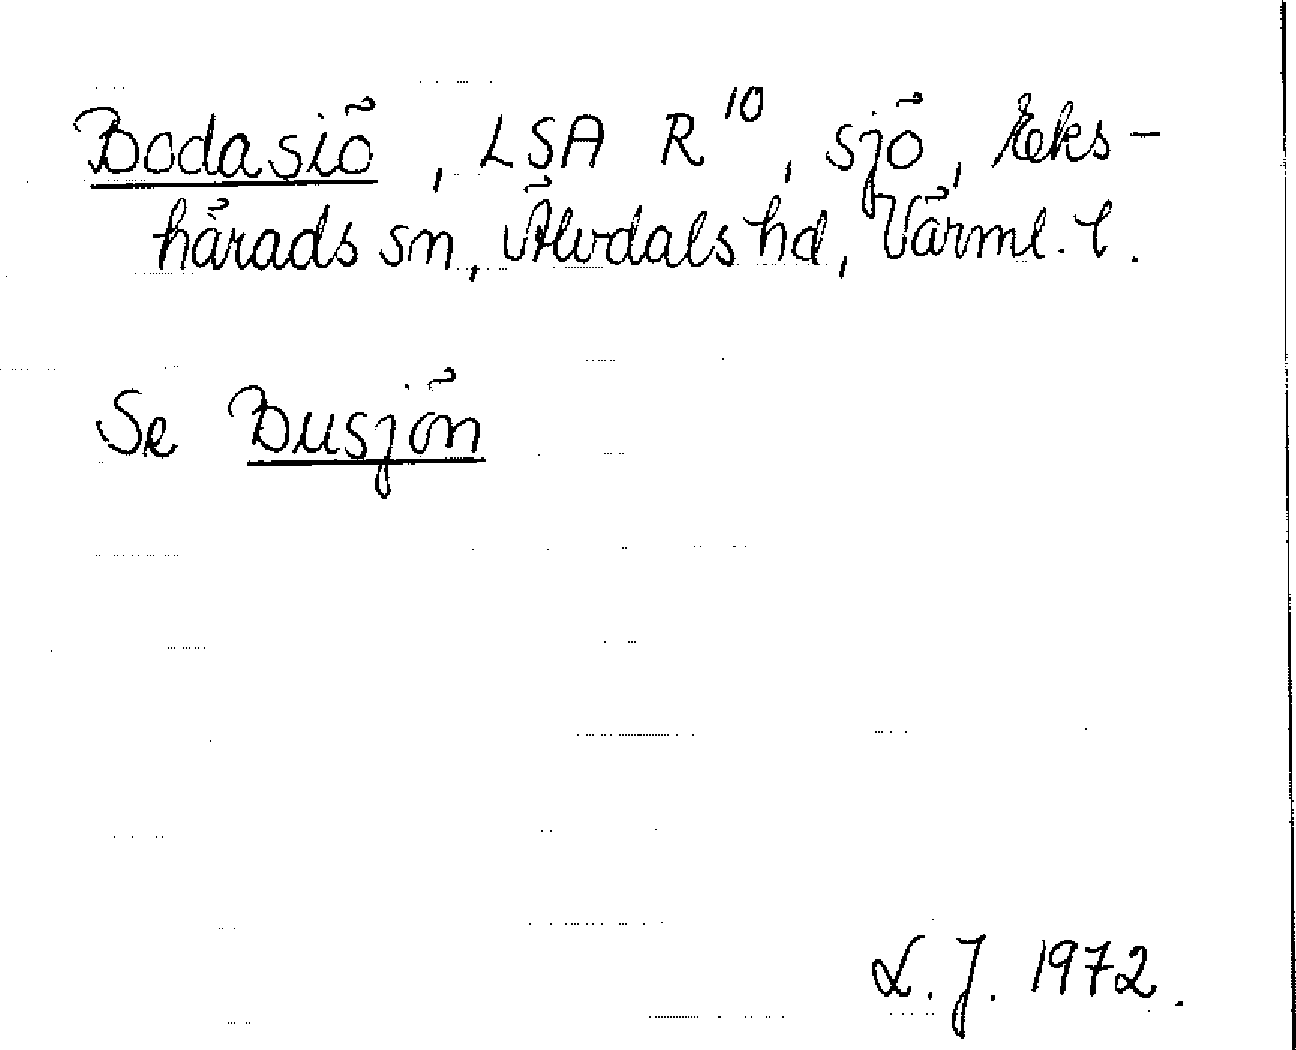 Bodasiö, LSA R¹⁰, sjö, Eks-
härads sn, Älvdals hd, Värml. l.
Se Busjön
L. J. 1972.